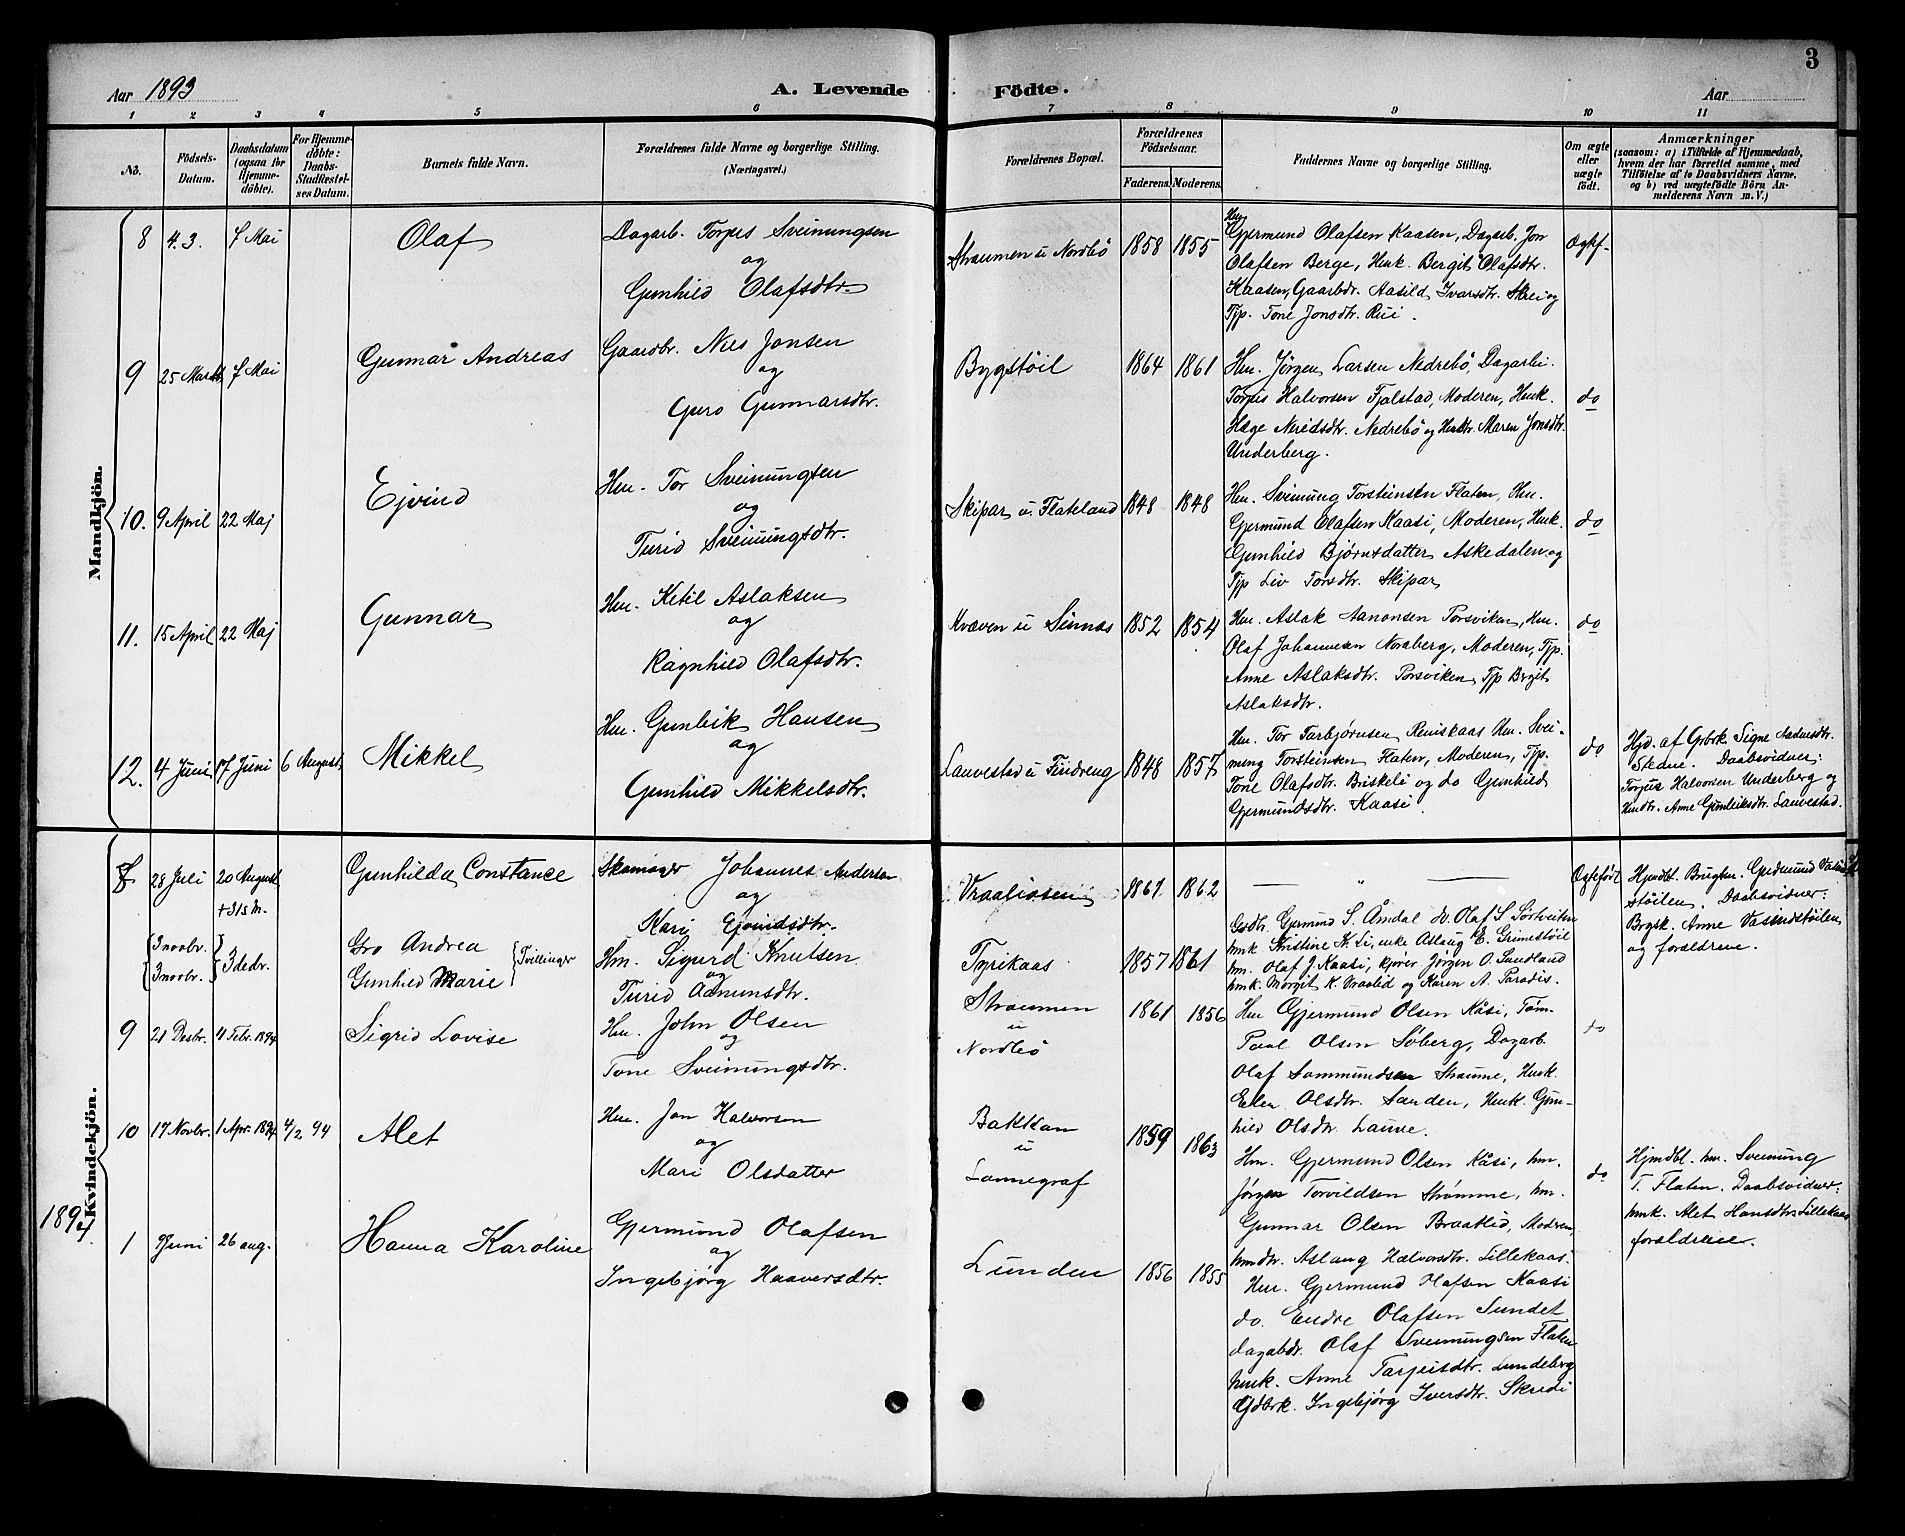 3
Aar 1893
A. Levende Födte.
Aar
1 2 3 4 5 6 7 8 9 10 11
No.
Födsels-Datum.
Daabsdatum (ogsaa for Hjemmedöbte).
For Hjemmedöbte: Daabs-Stadfestelses Datum.
Barnets fulde Navn.
Forældrenes fulde Navne og borgerlige Stilling. (Næringsvei.)
Forældrenes Bopæl.
Forældrenes Födselsaar.
Faderens. Moderens.
Faddernes Navne og borgerlige Stilling.
Om ægte eller uægte födt.
Anmærkninger
(saasom: a) i Tilfælde af Hjemmedaab, hvem der har forrettet samme, med Tilföielse af to Daabsvidners Navne, og b) ved uægtefödte Börn Anmelderens Navn m. V.)
Mandkjön.
8 4.3. 7 Mai
Olaf
Dagarb. Torjus Sveinungsen
og
Gunhild Olafsdtr.
Straumen u Nordbö 1858 1855
Hm. Gjermund Olafsen Kaasen, Dagarb. Jon
Olafsen Berge, Husk. Bergit Olafsdtr.
Kaasen, Gaarbdr. Aasild Ivarsdtr. Skrei og
Tjp. Tone Jonsdtr. Rui.
Ægtf.
9 25 Marts 7 Mai
Gunnar Andreas
Gaardbr. Nils Jonsen
og
Guro Gunnarsdtr.
Bygstöil 1864 1861
Hm. Jörgen Larsen Nedrebö, Dagarbei.
Torjus Halvorsen Fjalstad, Moderen, Husk.
Hæge Neridsdtr. Nedrebö og Husdtr. Maren Jonsdtr.
Underberg.
do
10. 9 April 22 Maj
Ejvind
Hm. Tor Sveinungsen
og
Turid Sveinungsdtr.
Skipar u. Flateland 1848 1848
Hm. Sveinung Torsteinsen Flaten, Hm.
Gjermund Olafsen Kaasi, Moderen, Husk.
Gunhild Bjørnsdatter Askedalen og
Tjp Liv Torsdtr. Skipar
do
11. 15 April 22 Maj
Gunnar
Hm. Ketil Aslaksen
og
Ragnhild Olafsdtr.
Kvæven u Sinnæs 1852 1854
Hm. Aslak Aanonsen Torsviken, Hm.
Olaf Johannesen Noraberg, Moderen, Tjp.
Anne Aslaksdtr. Torsviken, Tjp Bergit
Aslaksdtr.
do
12. 4 Juni 17 Juni 6 August
Mikkel
Hm. Gunleik Hansen
og
Gunhild Mikkelsdtr.
Lauvestad u Findreng 1848 1857
Hm. Tor Tarbjørnsen Reniskaas Hm. Svei-
nung Torsteinsen Flaten, Moderen, Tjp.
Tone Olafsdtr. Briskeli og do Gunhild
Gjermundsdtr. Kaasi.
do
Hjd. af Grbrk. Signe
Skane. Daabsvidner:
Torjus Halvorsen Underberg og
Husdtr. Anne Gunleiksdtr. Lauvestad.
Kvindekjön.
28 Juli 20 August
Gunhilda Constance
Skomager Johannes Andersen
og
Kari Ejvindsdtr.
Vraaliosen 1861 1862
— " —
Ægtefödt
Hjmdbt. Brugsm. Gudmund
stöilen. Daabsvidner:
Brgsk. Anne Vasindstöilen
og forældrene.
3 novbr.
3 novbr.
3 decbr.
Gro Andrea
Gunhild Marie
Tvillinger
Hm. Sigurd Knutsen
og
Turid Aanunsdtr.
Tyrikaas 1857 1861
Gsdb. Gjermund S. Åmdal do. Olaf S. Sørtveiten
hmk Kristine K. Li, enke Aslaug E. Grimestöil
hm. Olaf J. Kaasi, kjører Jörgen O. Sundland
hmk. Margit K. Vraalid og Karen A. Paradis.
9 21 Desbr. 4 Febr. 1894
Sigrid Lovise
Hm. John Olsen
og
Tone Sveinungsdtr.
Straumen
u
Nordbö
1861 1856
Hm Gjermund Olsen Kåsi, Töm-
Paal Olsen Søberg, Dagarb.
Olaf Sommundsen Straume, Husk.
Elen Olsdtr. Sanden, Husk. Gun-
hild Olsdtr Lauve.
do
10 17 Novbr. 1 Apr. 1894 4/2 94
Alet
Hm. Jon Halvorsen
og
Mari Olsdatter
Bakkan
u
Lonnegraf
1859 1863
Hm. Gjermund Olsen Kåsi, hm.
Jørgen Torvildsen Strømme, hm.
Gunnar Olsen Braatlid, Moderen,
hmdtr. Aslaug Halvorsdtr. Lillekaas.
do
Hjmdbt. hm. Sveinung
T. Flaten. Daabsvidner:
hmk. Alet Hansdtr. Lillekaas
forældrene.
1894.
1 9 Juni 26 aug.
Hanna Karoline
Gjermund Olafsen
og
Ingebjørg Haaversdtr.
Lunden 1856 1855
Hm. Gjermund Olafsen Kaasi
do. Endre Olafsen Sundet
dagabdr. Olaf Sveinungsen Flaten
husk. Anne Tarjeisdtr. Lundeberg
Gdbrk. Ingebjørg Iversdtr. Skredi